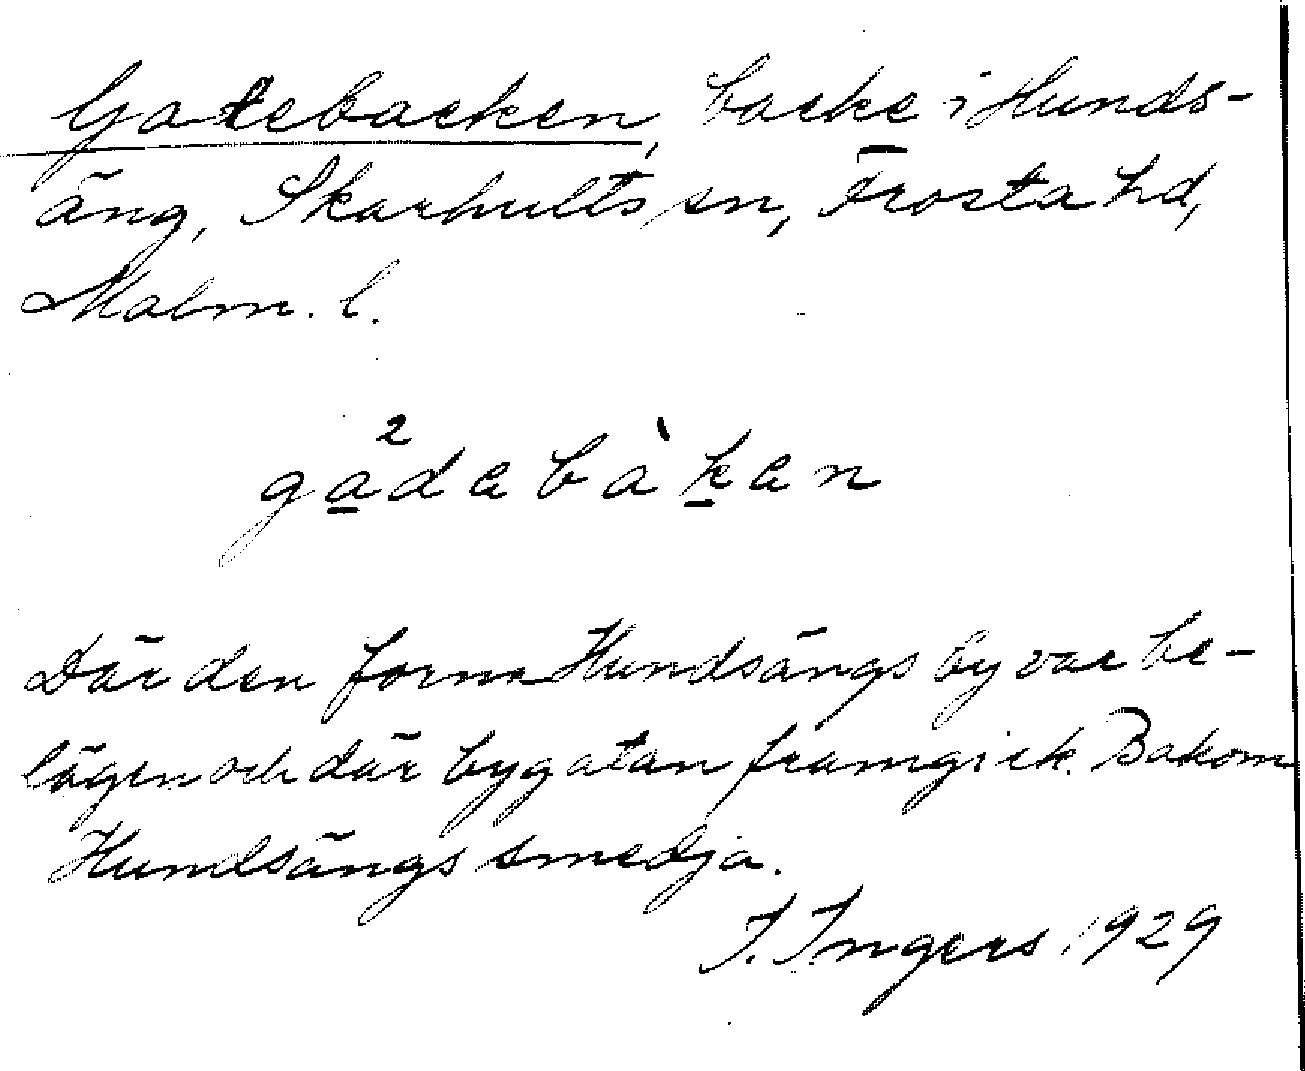 Gatebacken, backe i Hunds-
äng, Skarhults sn, Frosta hd,
Malm. l.
gådabàkan
Där den forna Hundsängs by var be-
lägen och där bygatan framgick. Bakom
Hundsängs smedja.
I. Ingers 1929